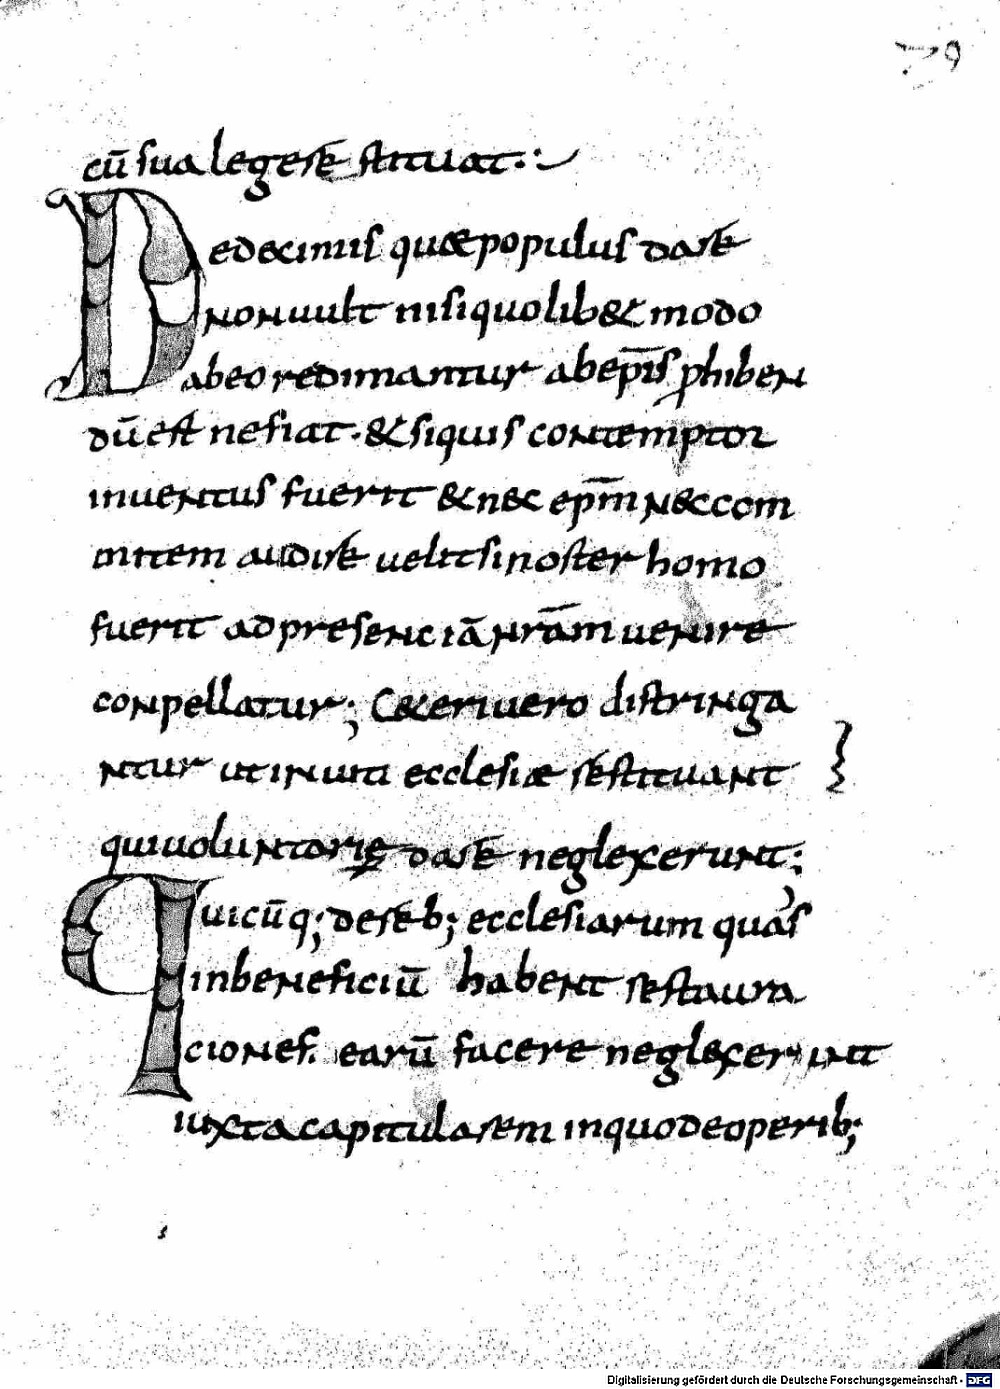 79
cū sua lege restituat.
De decimis quae populus dare
non uult nisi quolib& modo
ab eo redimantur ab ep̄is p̱hiben
dū est ne fiat. & si quis contemptor
inuentus fuerit & nec ep̄m nec com
mitem audire uelit si noster homo
fuerit ad presenciā nr̄am uenire
conpellatur; C&eri uero distringa
ntur ut inuiti ecclesiae restituant
qui uoluntarię dare neglexerunt;
Quicūq; de reb; ecclesiarum quas
in beneficiū habent restaura
ciones earū facere neglexerint
iuxta capitularem in quo de operib;
Digitalisierung gefördert durch die Deutsche Forschungsgemeinschaft - DFG